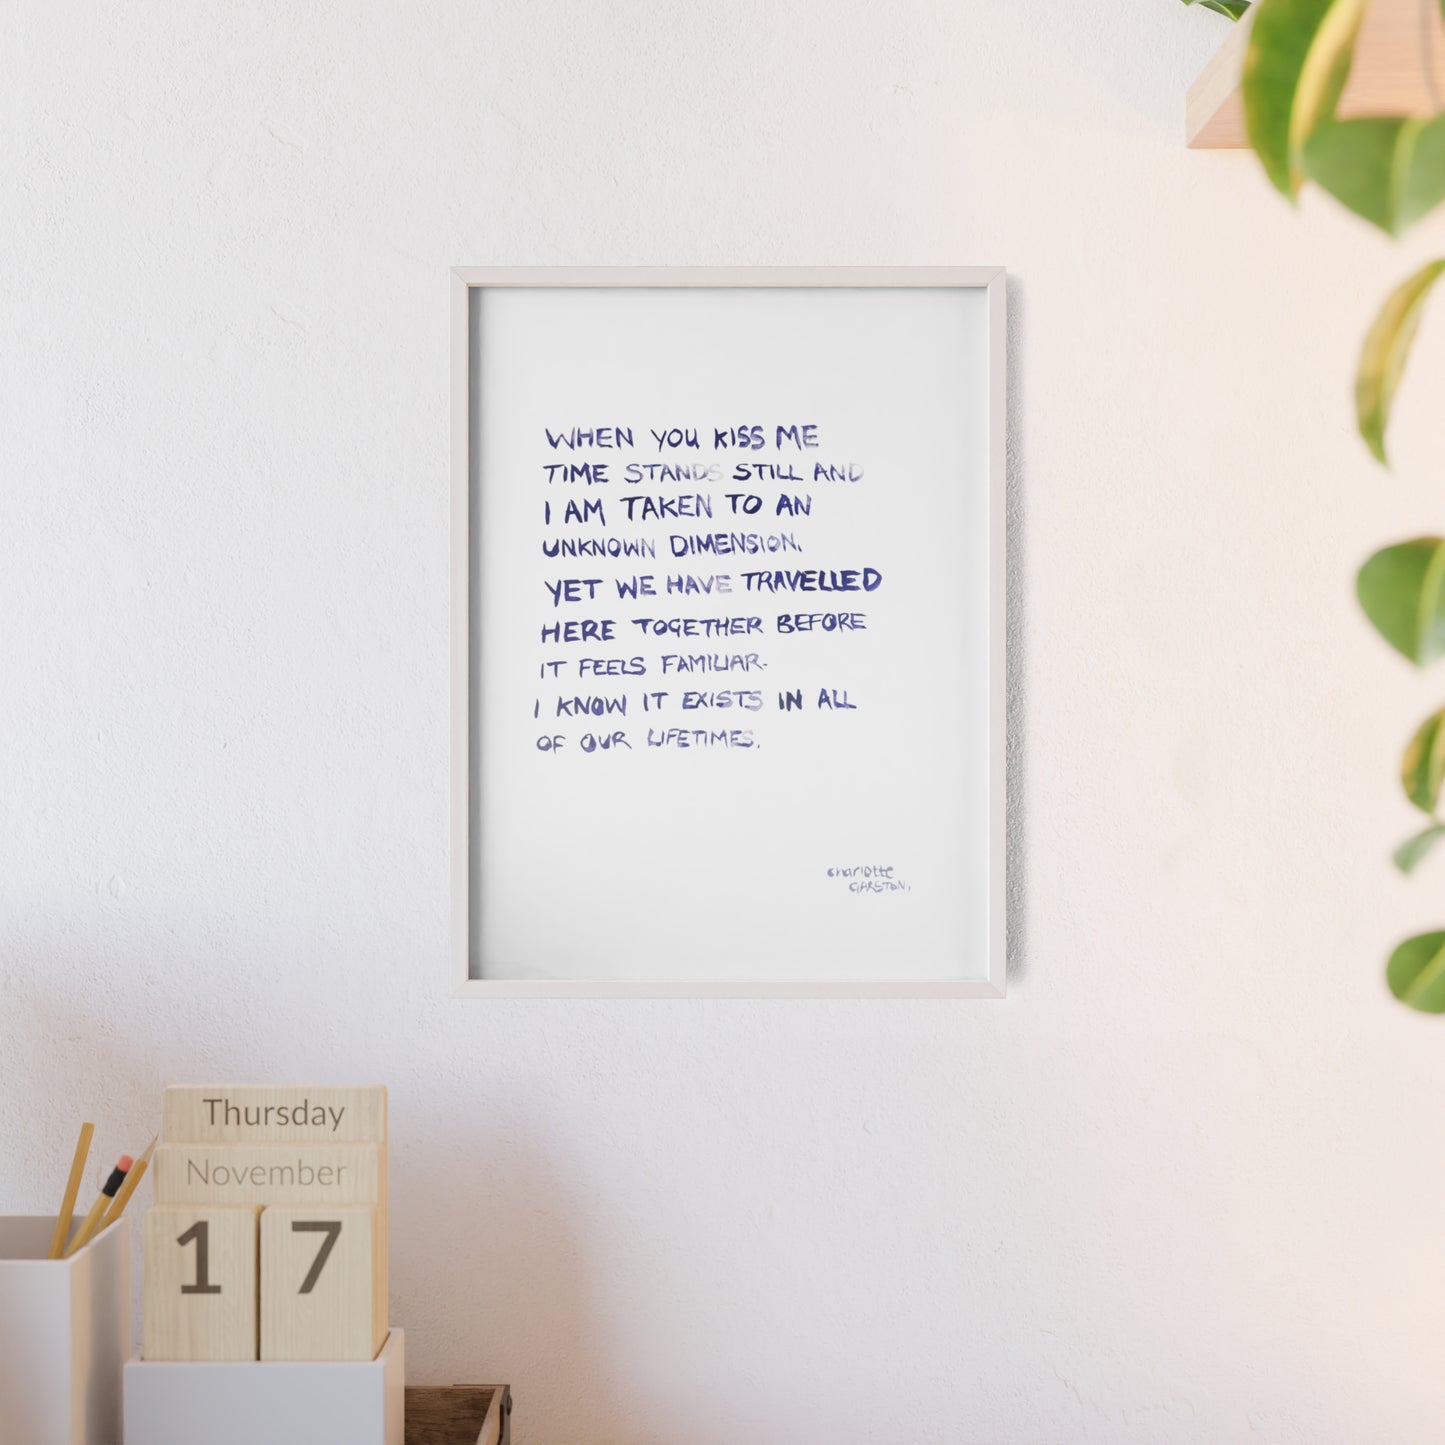 WHEN YOU KISS ME
TIME STANDS STILL AND
I AM TAKEN TO AN
UNKNOWN DIMENSION.
YET WE HAVE TRAVELLED
HERE TOGETHER BEFORE
IT FEELS FAMILIAR.
I KNOW IT EXISTS IN ALL
OF OUR LIFETIMES.
charlotte
GARSTON.
Thursday
November
17